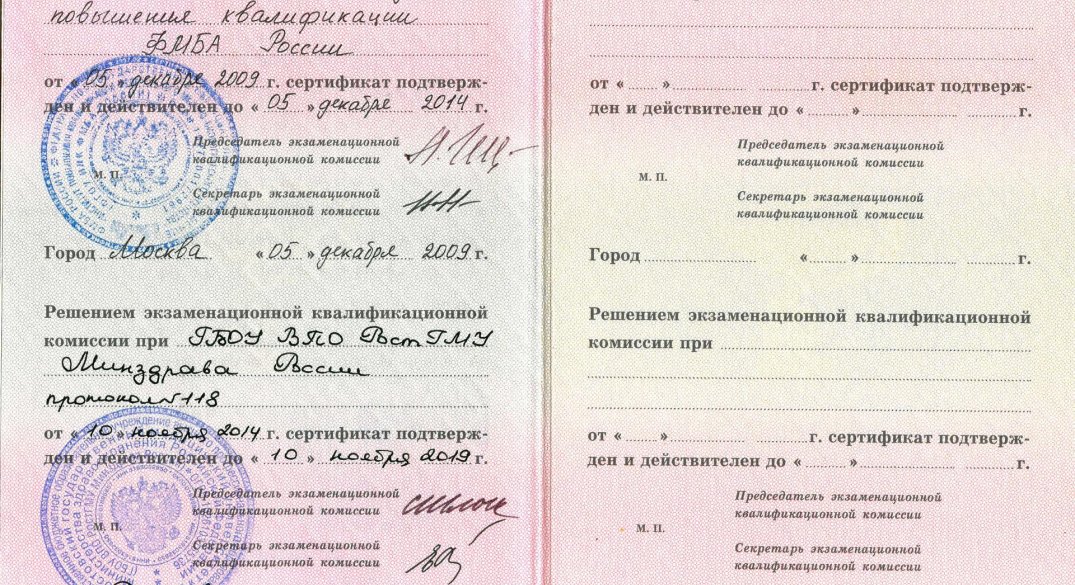 повышения квалификации
ФМБА России
от « 05 » декабря 2009 г. сертификат подтверж-
ден и действителен до « 05 » декабря 2014 г.
Председатель экзаменационной
квалификационной комиссии
М. П.
Секретарь экзаменационной
квалификационной комиссии
Город Москва « 05 » декабря 2009 г.
Решением экзаменационной квалификационной
комиссии при ГБОУ ВПО РостГМУ
Минздрава России
протокол №118
от « 10 » ноября 2014 г. сертификат подтверж-
ден и действителен до « 10 » ноября 2019 г.
Председатель экзаменационной
квалификационной комиссии
М. П.
Секретарь экзаменационной
квалификационной комиссии
от « » г. сертификат подтверж-
ден и действителен до « » г.
Председатель экзаменационной
квалификационной комиссии
М. П.
Секретарь экзаменационной
квалификационной комиссии
Город « » г.
Решением экзаменационной квалификационной
комиссии при
от « » г. сертификат подтверж-
ден и действителен до « » г.
Председатель экзаменационной
квалификационной комиссии
М. П.
Секретарь экзаменационной
квалификационной комиссии